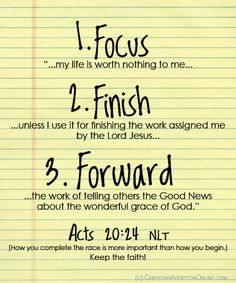 1. Focus
"...my life is worth nothing to me...
2. Finish
...unless I use it for finishing the work assigned me
by the Lord Jesus...
3. Forward
...the work of telling others the Good News
about the wonderful grace of God."
Acts 20:24 NLT
(How you complete the race is more important than how you begin.)
Keep the faith!
(c) ChristianAdoptionOnline.com